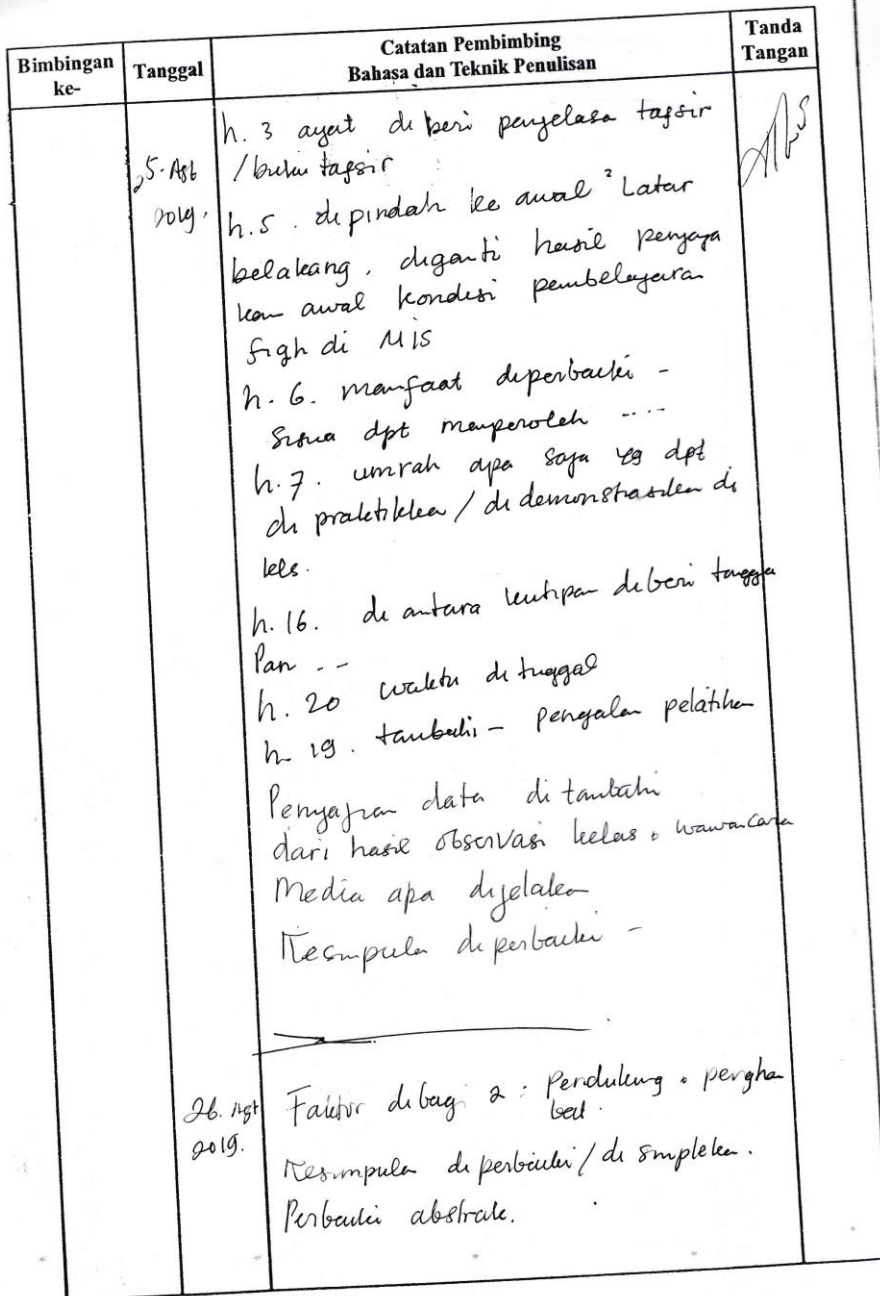 Bimbingan ke-
Tanggal
Catatan Pembimbing
Bahasa dan Teknik Penulisan
Tanda Tangan
25. Agt 2019.
h. 3 ayat di beri penjelasa tafsir
/buku tafsir
h. 5. dipindah ke awal ² Latar
belakang. diganti hasil penjaja
kan awal kondisi pembelajaran
fiqh di MIS
h. 6. manfaat diperbaiki -
siswa dpt memperoleh ....
h. 7. umrah apa saja yg dpt
di praktikkan / di demonstrasikan di
kls.
h. 16. di antara kutipan diberi tangga
pan --
h. 20 waktu ditinggal
h. 19. tambahi - pengalan pelatihan
Penyajian data di tambahi
dari hasil observasi kelas wawancara
Media apa dijelaken
Kesimpula diperbaiki -
26. Agt 2019.
Faktor dibagi 2 : Pendukung . pengha
bat.
Kesimpula diperbaiki / di simpleken.
Perbaiki abstrak.